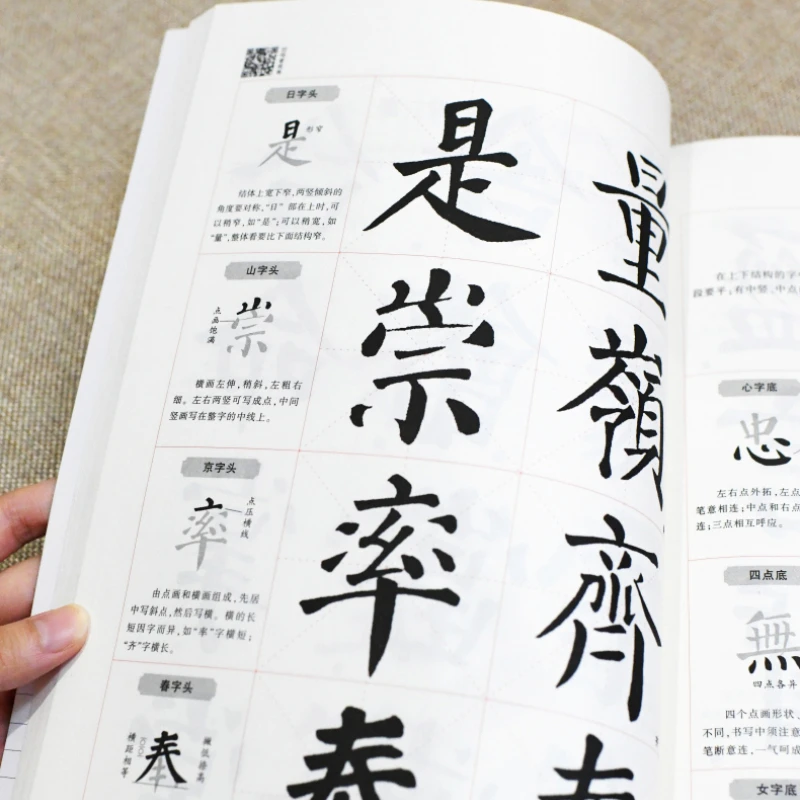 日字头
是
形窄
结体上宽下窄,两竖倾斜的
角度要对称,“日”部在上时,可
以稍窄,如“是”;可以稍宽,如
“量”,整体看要比下面结构窄。
是
量
山字头
点画饱满
崇
横画左伸,稍斜,左粗右
细。左右两竖可写成点,中间
竖画写在整字的中线上。
崇
嶺
京字头
点压横线
率
由点画和横画组成,先居
中写斜点,然后写横。横的长
短因字而异,如“率”字横短;
“齐”字横长。
率
齊
春字头
横距相等
撇低捺高
在上下结构的字
段要平;有中竖、中点
心字底
忠
左右点外拓,左点
笔意相连;中点和右点
连;三点相互呼应。
四点底
無
四点各异
四个点画形状、
不同,书写中须注意
笔断意连,一气呵成
女字底